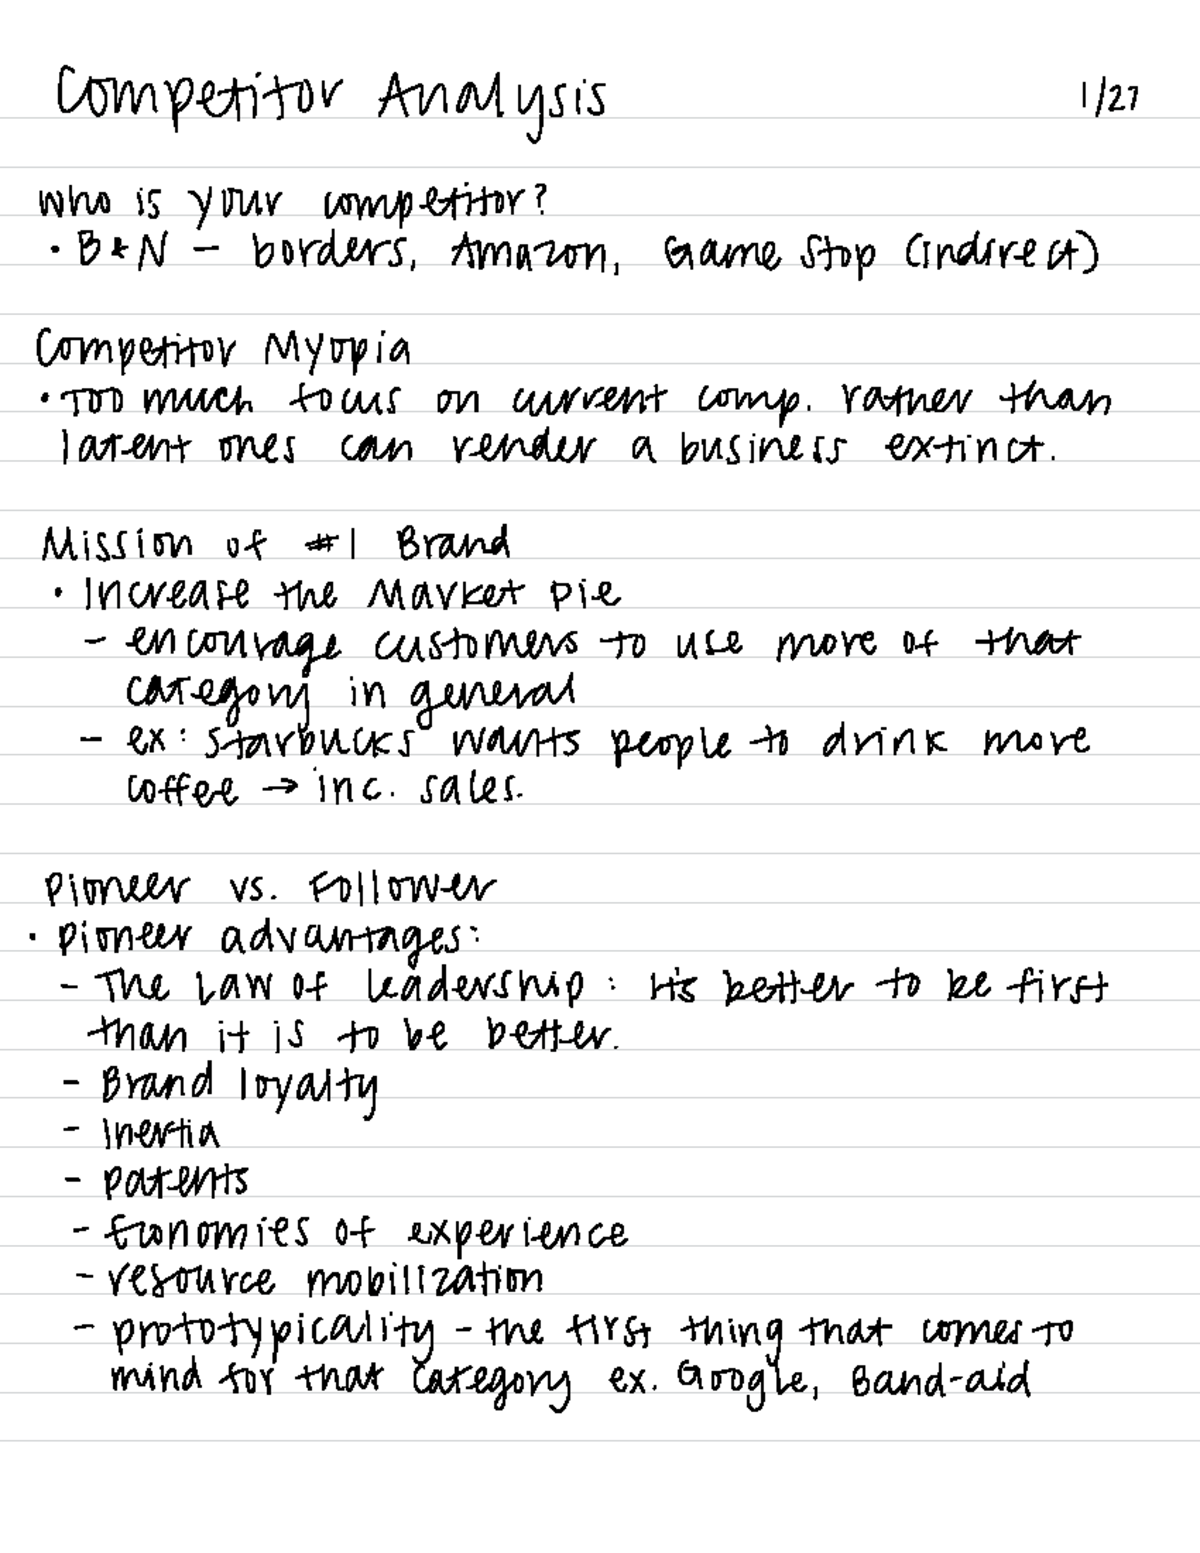 Competitor Analysis 1/27
who is your competitor?
• B&N – borders, Amazon, Game Stop (indirect)
Competitor Myopia
• Too much focus on current comp. rather than
latent ones can render a business extinct.
Mission of #1 Brand
• Increase the Market pie
– encourage customers to use more of that
category in general
– ex: starbucks wants people to drink more
coffee → inc. sales.
Pioneer vs. Follower
• pioneer advantages:
– The Law of leadership: it's better to be first
than it is to be better.
– Brand loyalty
– Inertia
– patents
– Economies of experience
– resource mobilization
– prototypicality – the first thing that comes to
mind for that category ex. Google, Band-aid